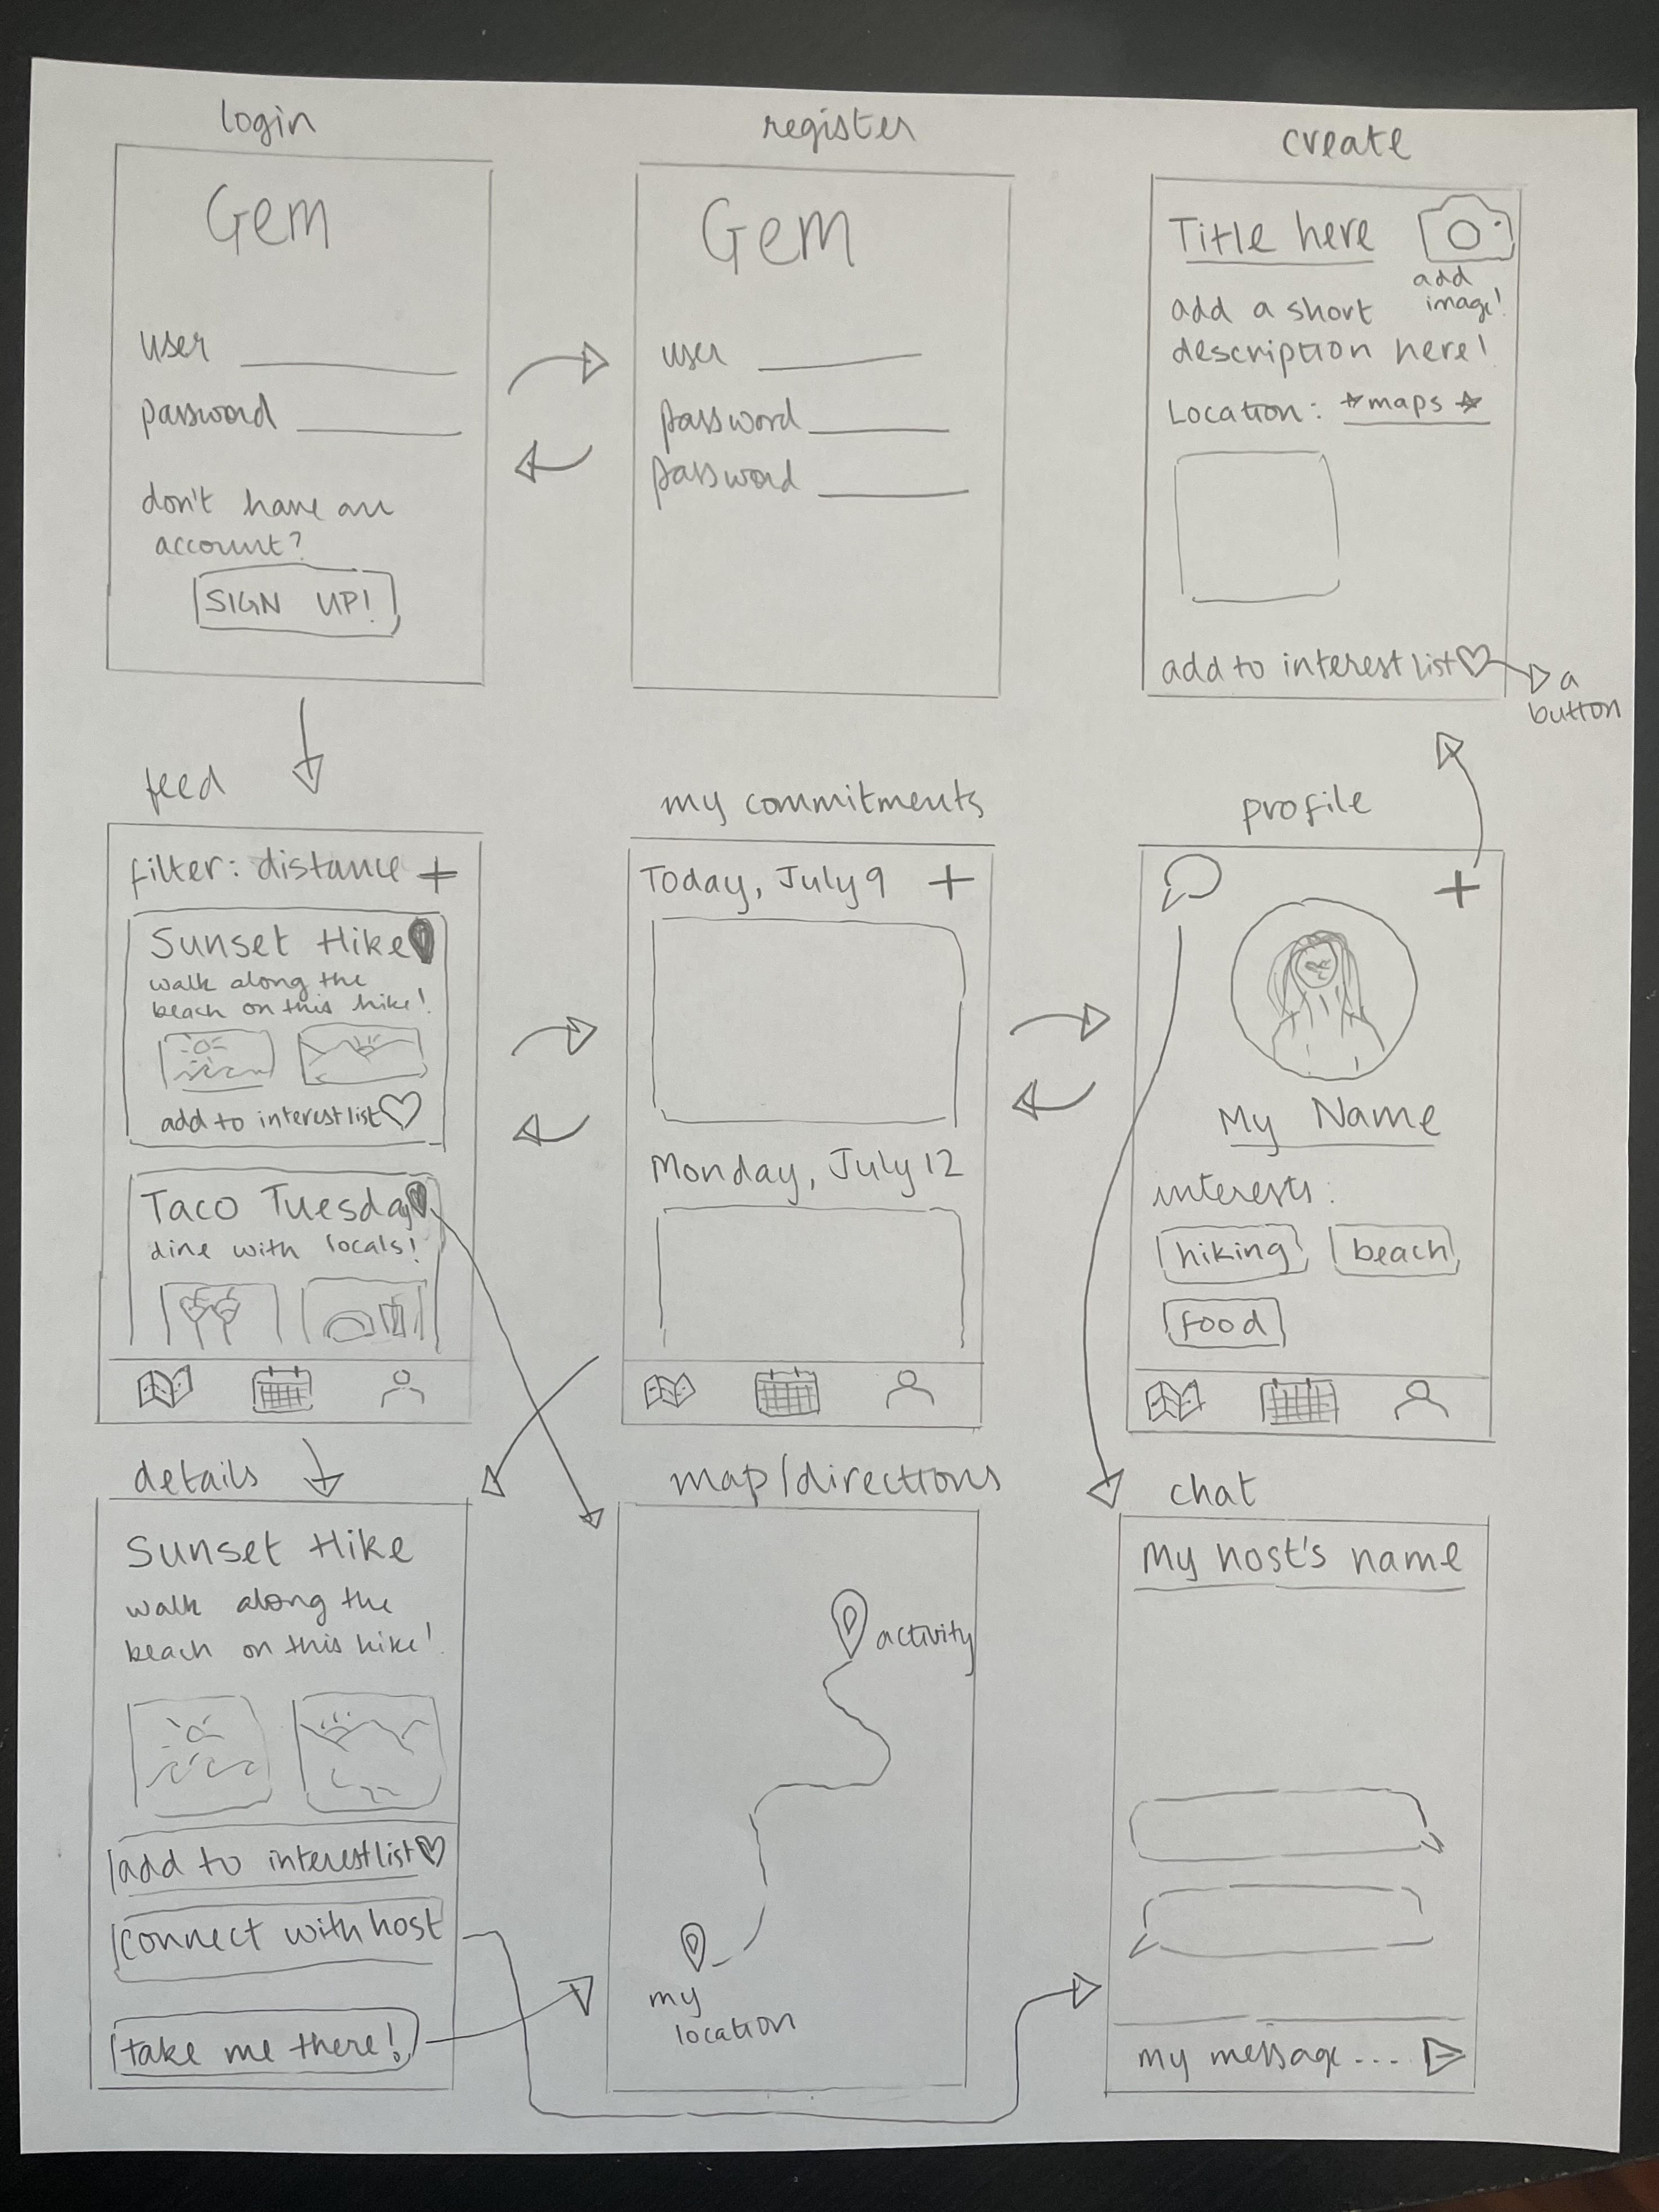 login
Gem
user
password
don't have an
account?
SIGN UP!
register
Gem
user
password
password
create
Title here
add
image!
add a short
description here!
Location: *maps*
add to interest list
a
button
feed
filter: distance +
Sunset Hike
walk along the
beach on this hike!
add to interest list
Taco Tuesday
dine with locals!
my commitments
Today, July 9 +
Monday, July 12
profile
+
My Name
interests:
hiking beach
food
details
Sunset Hike
walk along the
beach on this hike!
add to interest list
connect with host
take me there!
map/directions
activity
my
location
chat
My host's name
my message...